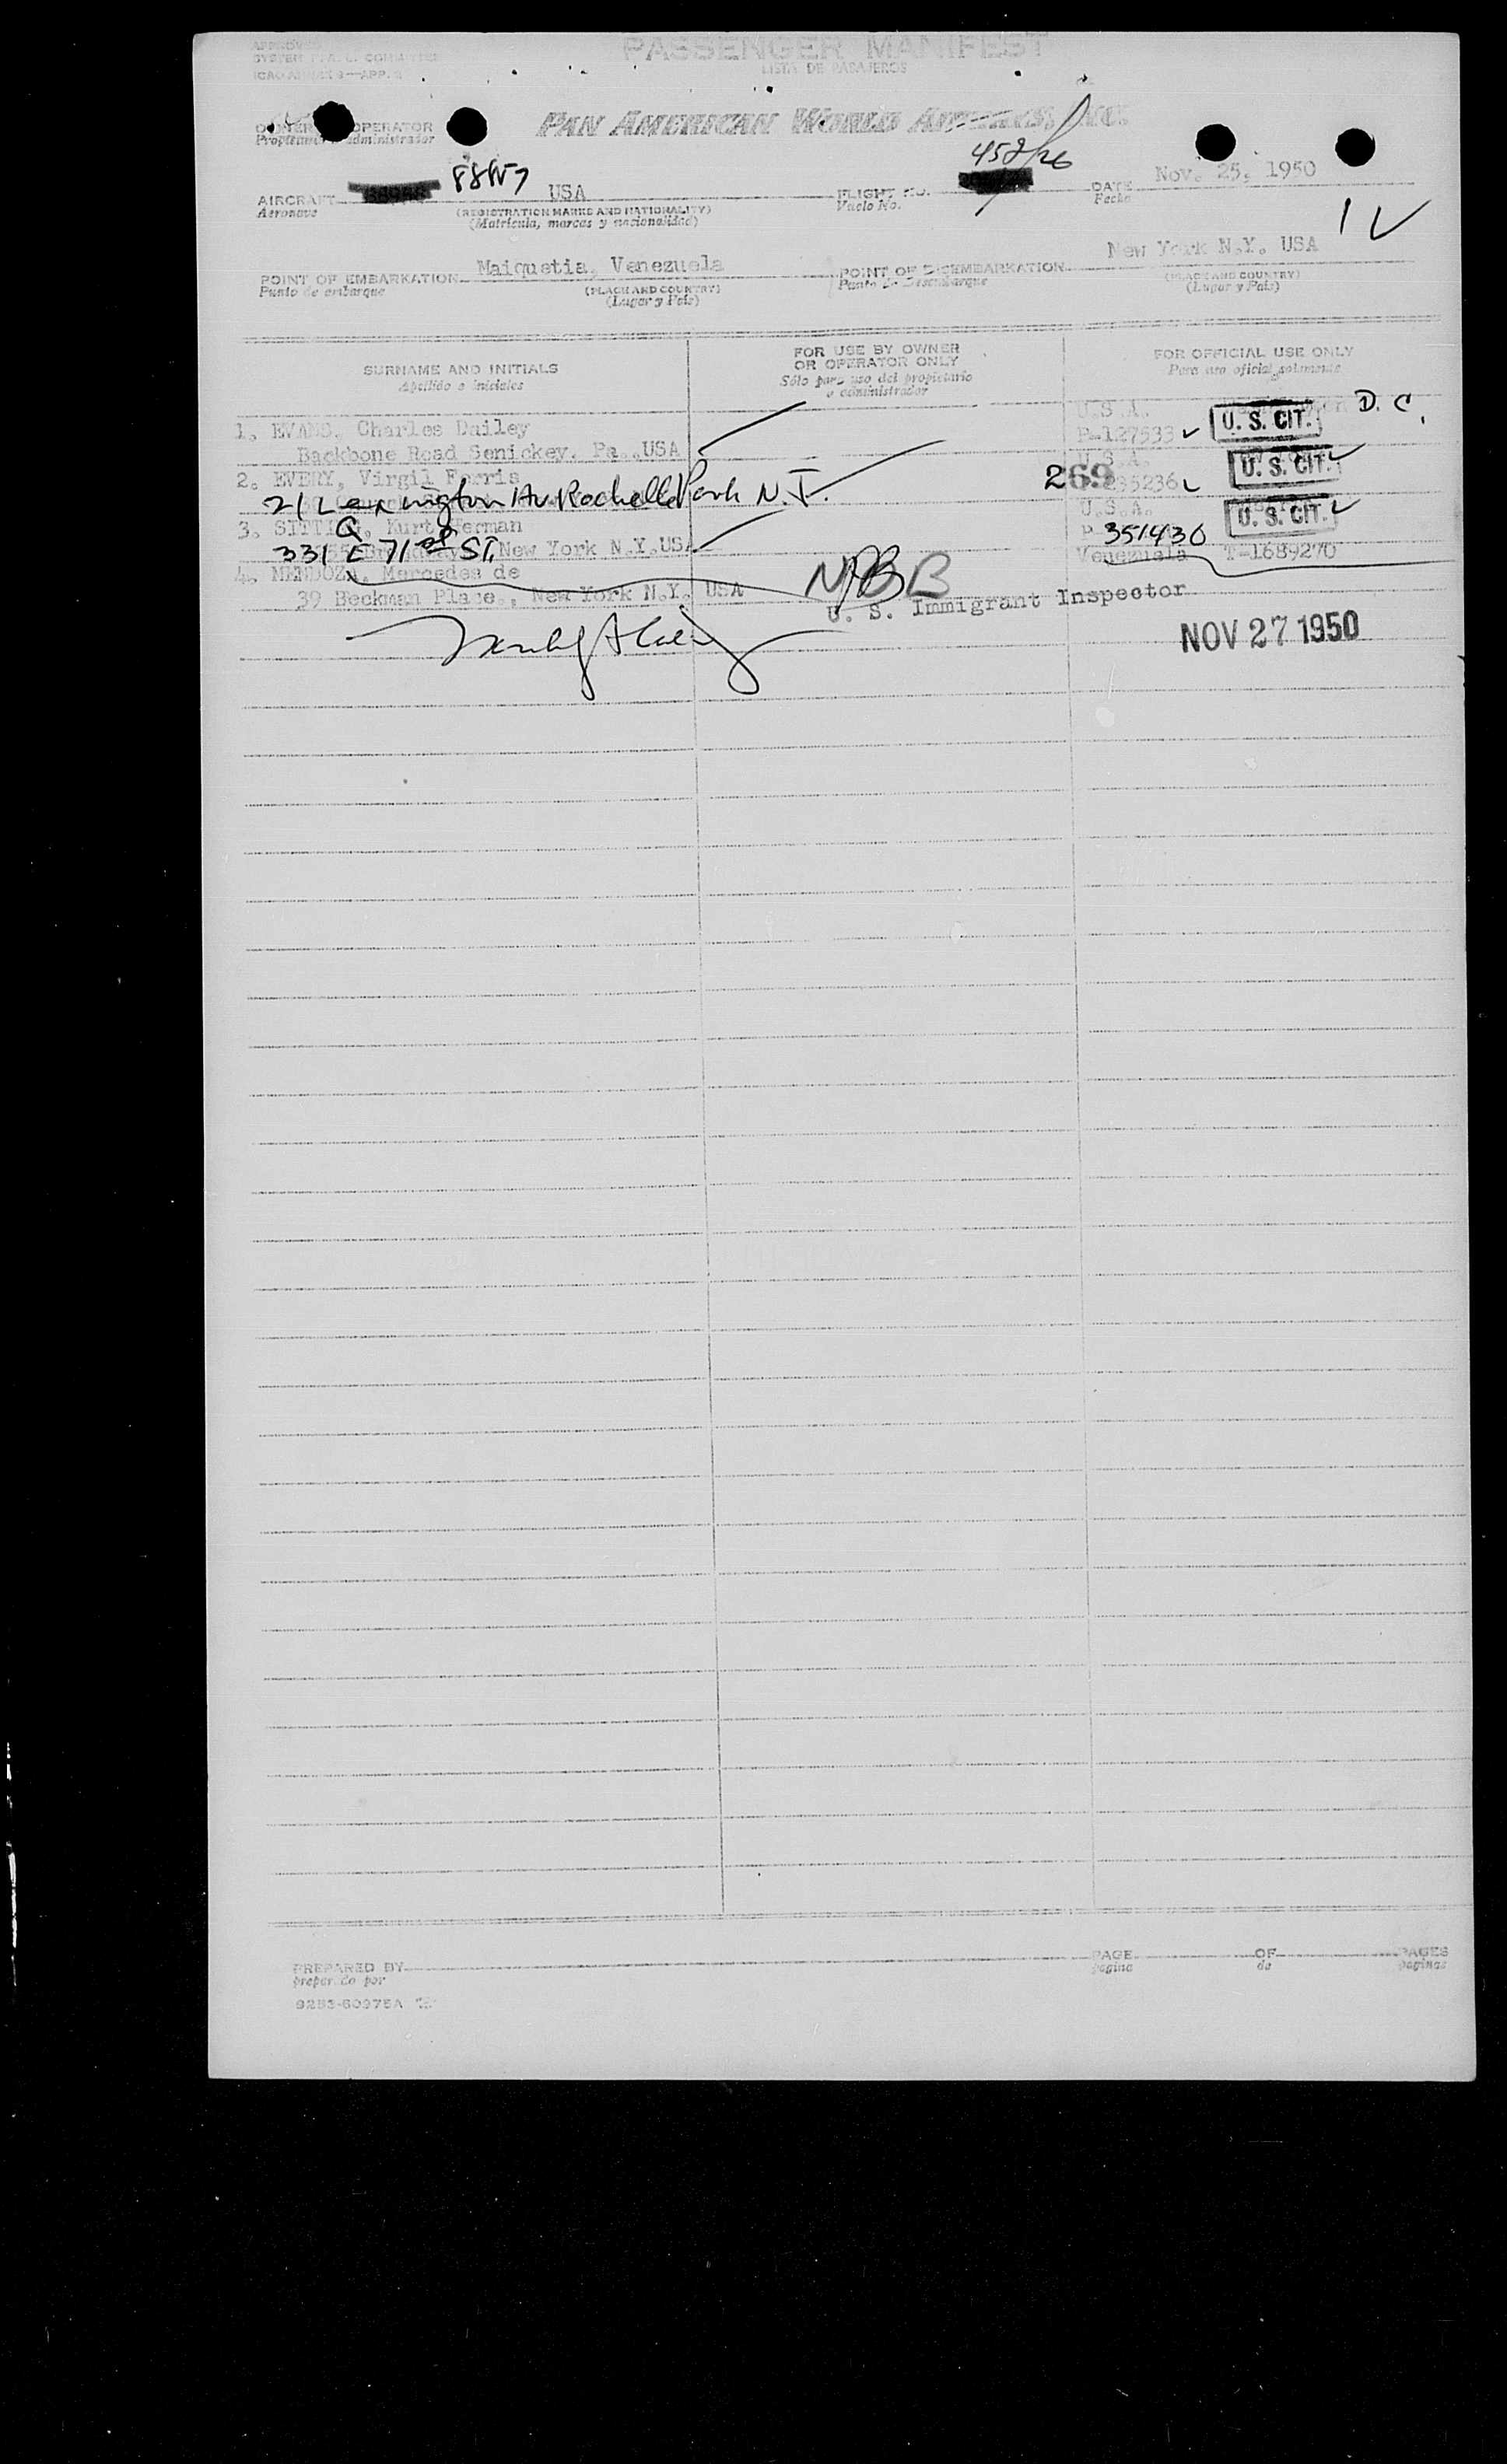 PASSENGER MANIFEST
LISTA DE PASAJEROS
ICAO ANNEX 9—APP. 
OWNER OPERATOR
administrador
PAN AMERICAN WORLD AIRWAYS, INC.
458/26
AIRCRAFT USA FLIGHT NO. DATE Nov. 25, 1950
Aeronave (REGISTRATION MARKS AND NATIONALITY) Vuelo No. Fecha
(Matrícula, marcas y nacionalidad)
POINT OF EMBARKATION Maiquetia, Venezuela POINT OF DISEMBARKATION New York N.Y. USA
Punto de embarque (PLACE AND COUNTRY) Punto de Desembarque (PLACE AND COUNTRY)
(Lugar y País) (Lugar y País)
SURNAME AND INITIALS FOR USE BY OWNER OR OPERATOR ONLY FOR OFFICIAL USE ONLY
Apellido e iniciales Sólo para uso del propietario o administrador Para uso oficial solamente
1. EVANS, Charles Dailey U.S.A. U. S. CIT. D. C.
Backbone Road Senickey, Pa.,USA P-127533
2. EVERY, Virgil Ferris 269 U.S.A. U. S. CIT.
21 Lexington Av. Rochelle Park N.J. 35236
3. SITTIG, Kurt Herman U.S.A. U. S. CIT.
G
331 E 71st ST, New York N.Y.USA P 351430
4. MENDOZA, Mercedes de Venezuela T-1689270
39 Beckman Place., New York N.Y. USA
U. S. Immigrant Inspector
NOV 27 1950
PREPARED BY PAGE OF PAGES
preparado por página de páginas
9283-60975A